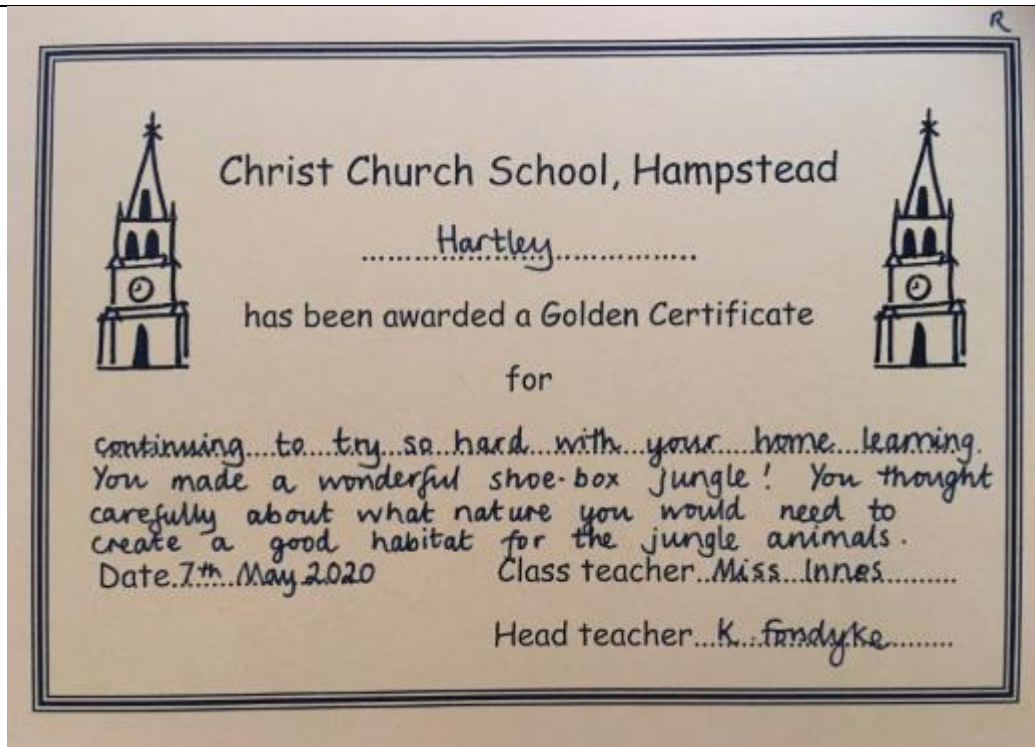 R
Christ Church School, Hampstead
Hartley
has been awarded a Golden Certificate
for
continuing to try so hard with your home learning.
You made a wonderful shoe-box jungle! You thought
carefully about what nature you would need to
create a good habitat for the jungle animals.
Date 7th May 2020 Class teacher Miss Innes
Head teacher K. Fondyke